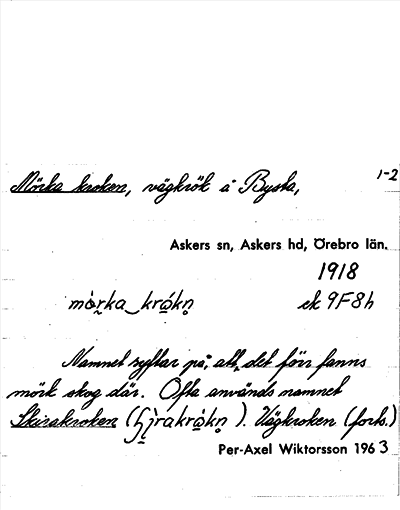 1-2
Mörka kroken, vägkrök å Bysta,
Askers sn, Askers hd, Örebro län.
1918
mörka krokn ek 9F8h
Namnet syftar på, att det förr fanns
mörk skog där. Ofta används namnet
Skirakroken ( ). Vägkroken (forts.)
Per-Axel Wiktorsson 1963